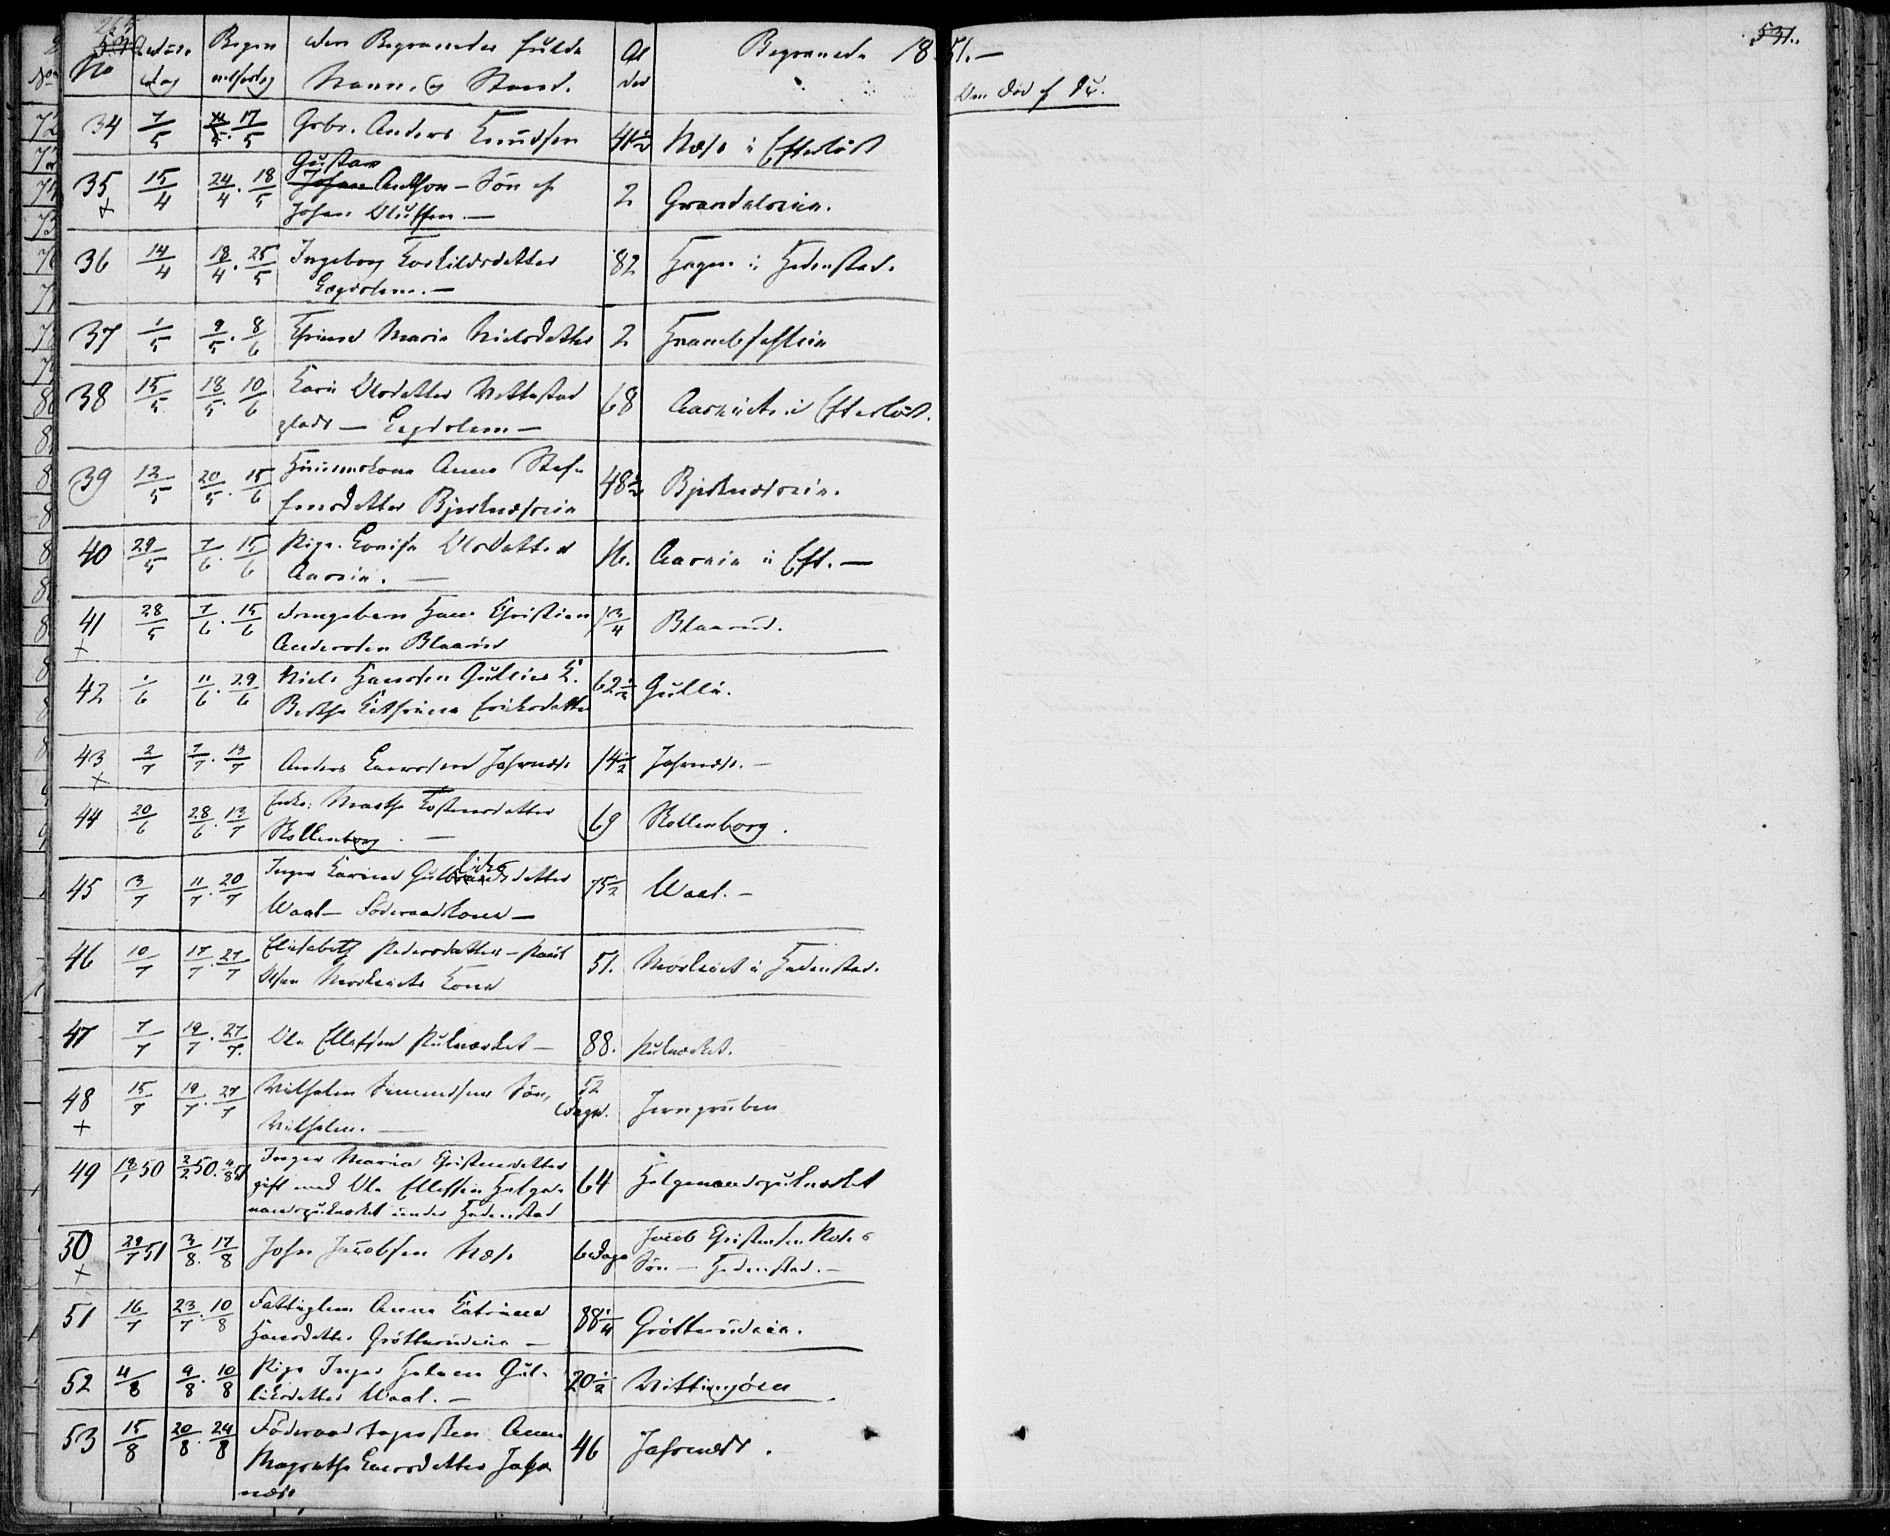 No Dødsdag Begravelsesdag den Begravedes fulde Navn og Stand. Alder Begravede 1851.—
531.
Om død af Du.
34 7/5 11/5. 17/5 Gbr. Anders Knudsen 41 1/2 Næss i Eftelødt
35 15/4 24/4. 18/5 Gustav
Johan Anthon – Søn af
+ Johan Olussen.— 2 Grandaleeien.
36 14/4 18/4. 25/5 Ingeborg Torkildsdatter
Lægdslem.— 82 Hagen i Hedenstad.
37 1/5 9/5. 8/6 Maria Nielsdatter 2
38 15/5 18/5. 10/6 Kari Olsdatter
plads — Lægdslem — 68 i Eftelødt.
39 12/5 20/5. 15/6 Huusmskone Anne Stef-
fensdatter Bjerknæseeie 48 1/2 Bjerknæseie.
40 29/5 7/6. 15/6 Pige. Lovise Olsdatter
Aaseeie.— 16. i Eft.—
41 28/5 7/6. 15/6 Drengebarn Hans Christian
+ Andersen Blaarud 1 3/4 Blaarud.
42 1/6 11/6. 29/6 Niels Hansen Gullies K.
Berthe Kathrine Eriksdatter 62 1/2 Gulli.
43 2/7 7/7. 13/7 Anders Larsen Jahrnæs
+ 14 1/2 Jahrnæs.—
44 20/6 28/6. 13/7 Enke: Marthe Tostensdatter
Skollenborg.— 69 Skollenborg.
45 3/7 11/7. 20/7 Inger Karine Gulbrandsdatter
liks
Waal – Føderaadskone — 75 1/2 Waal.—
46 10/7 17/7. 27/7 Elisabeth Pedersdatter – Poul
Olsen Mørkeiets Kone 51. i Hedenstad.
47 7/7 19/7. 27/7. Ole Ellefsen Pukværket — 88. Pukværket.
48 15/7 19/7. 27/7 Wilhelm Simensens Søn,
+ Wilhelm.— 52
Dage. Jerngruben
49 18/1 50 2/2 50. 4/8 51 Inger Maria Christensdatter
gift med Ole Ellefsen Helge-
vandspukværket under Hedenstad 64 Helgevandspukværket
50 29/7 51 3/8. 17/8 John Jacobsen Næss
+ 6 Dage Jacob Christensen Næss
Søn — Hedenstad.—
51 16/7 23/7. 10/8 Fattiglem Anne Katrine
Hansdatter Grøtterudeie — 88 1/4 Grøtterudeie.
52 4/8 9/8. 10/8 Pige Inger Helene Gul-
liksdatter Waal.— 20 1/2 Wittingøen
53 15/8 20/8. 24/8 Føderaads Anne
Margrethe Larsdatter Jahr-
næs 46 Jahrnæs.